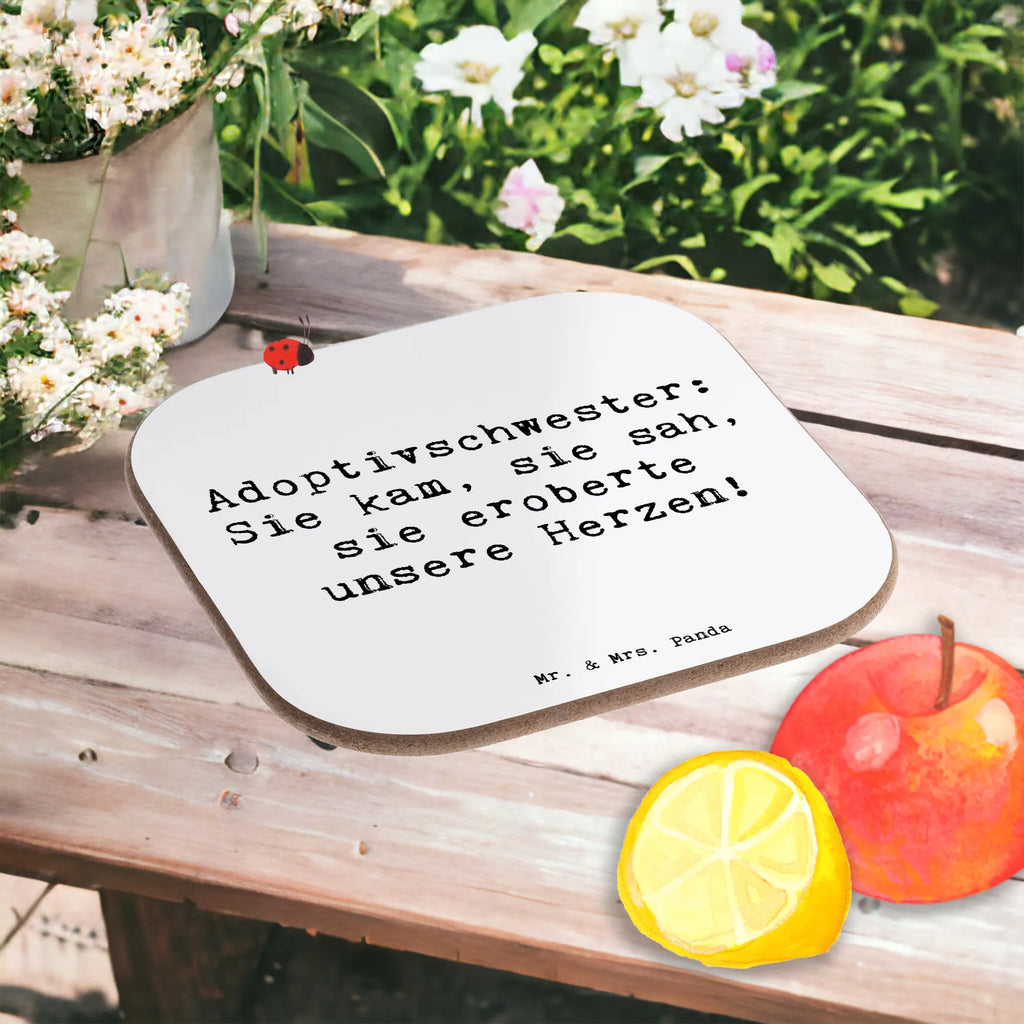 Adoptivschwester:
Sie kam, sie sah,
sie eroberte
unsere Herzen!
Mr. & Mrs. Panda